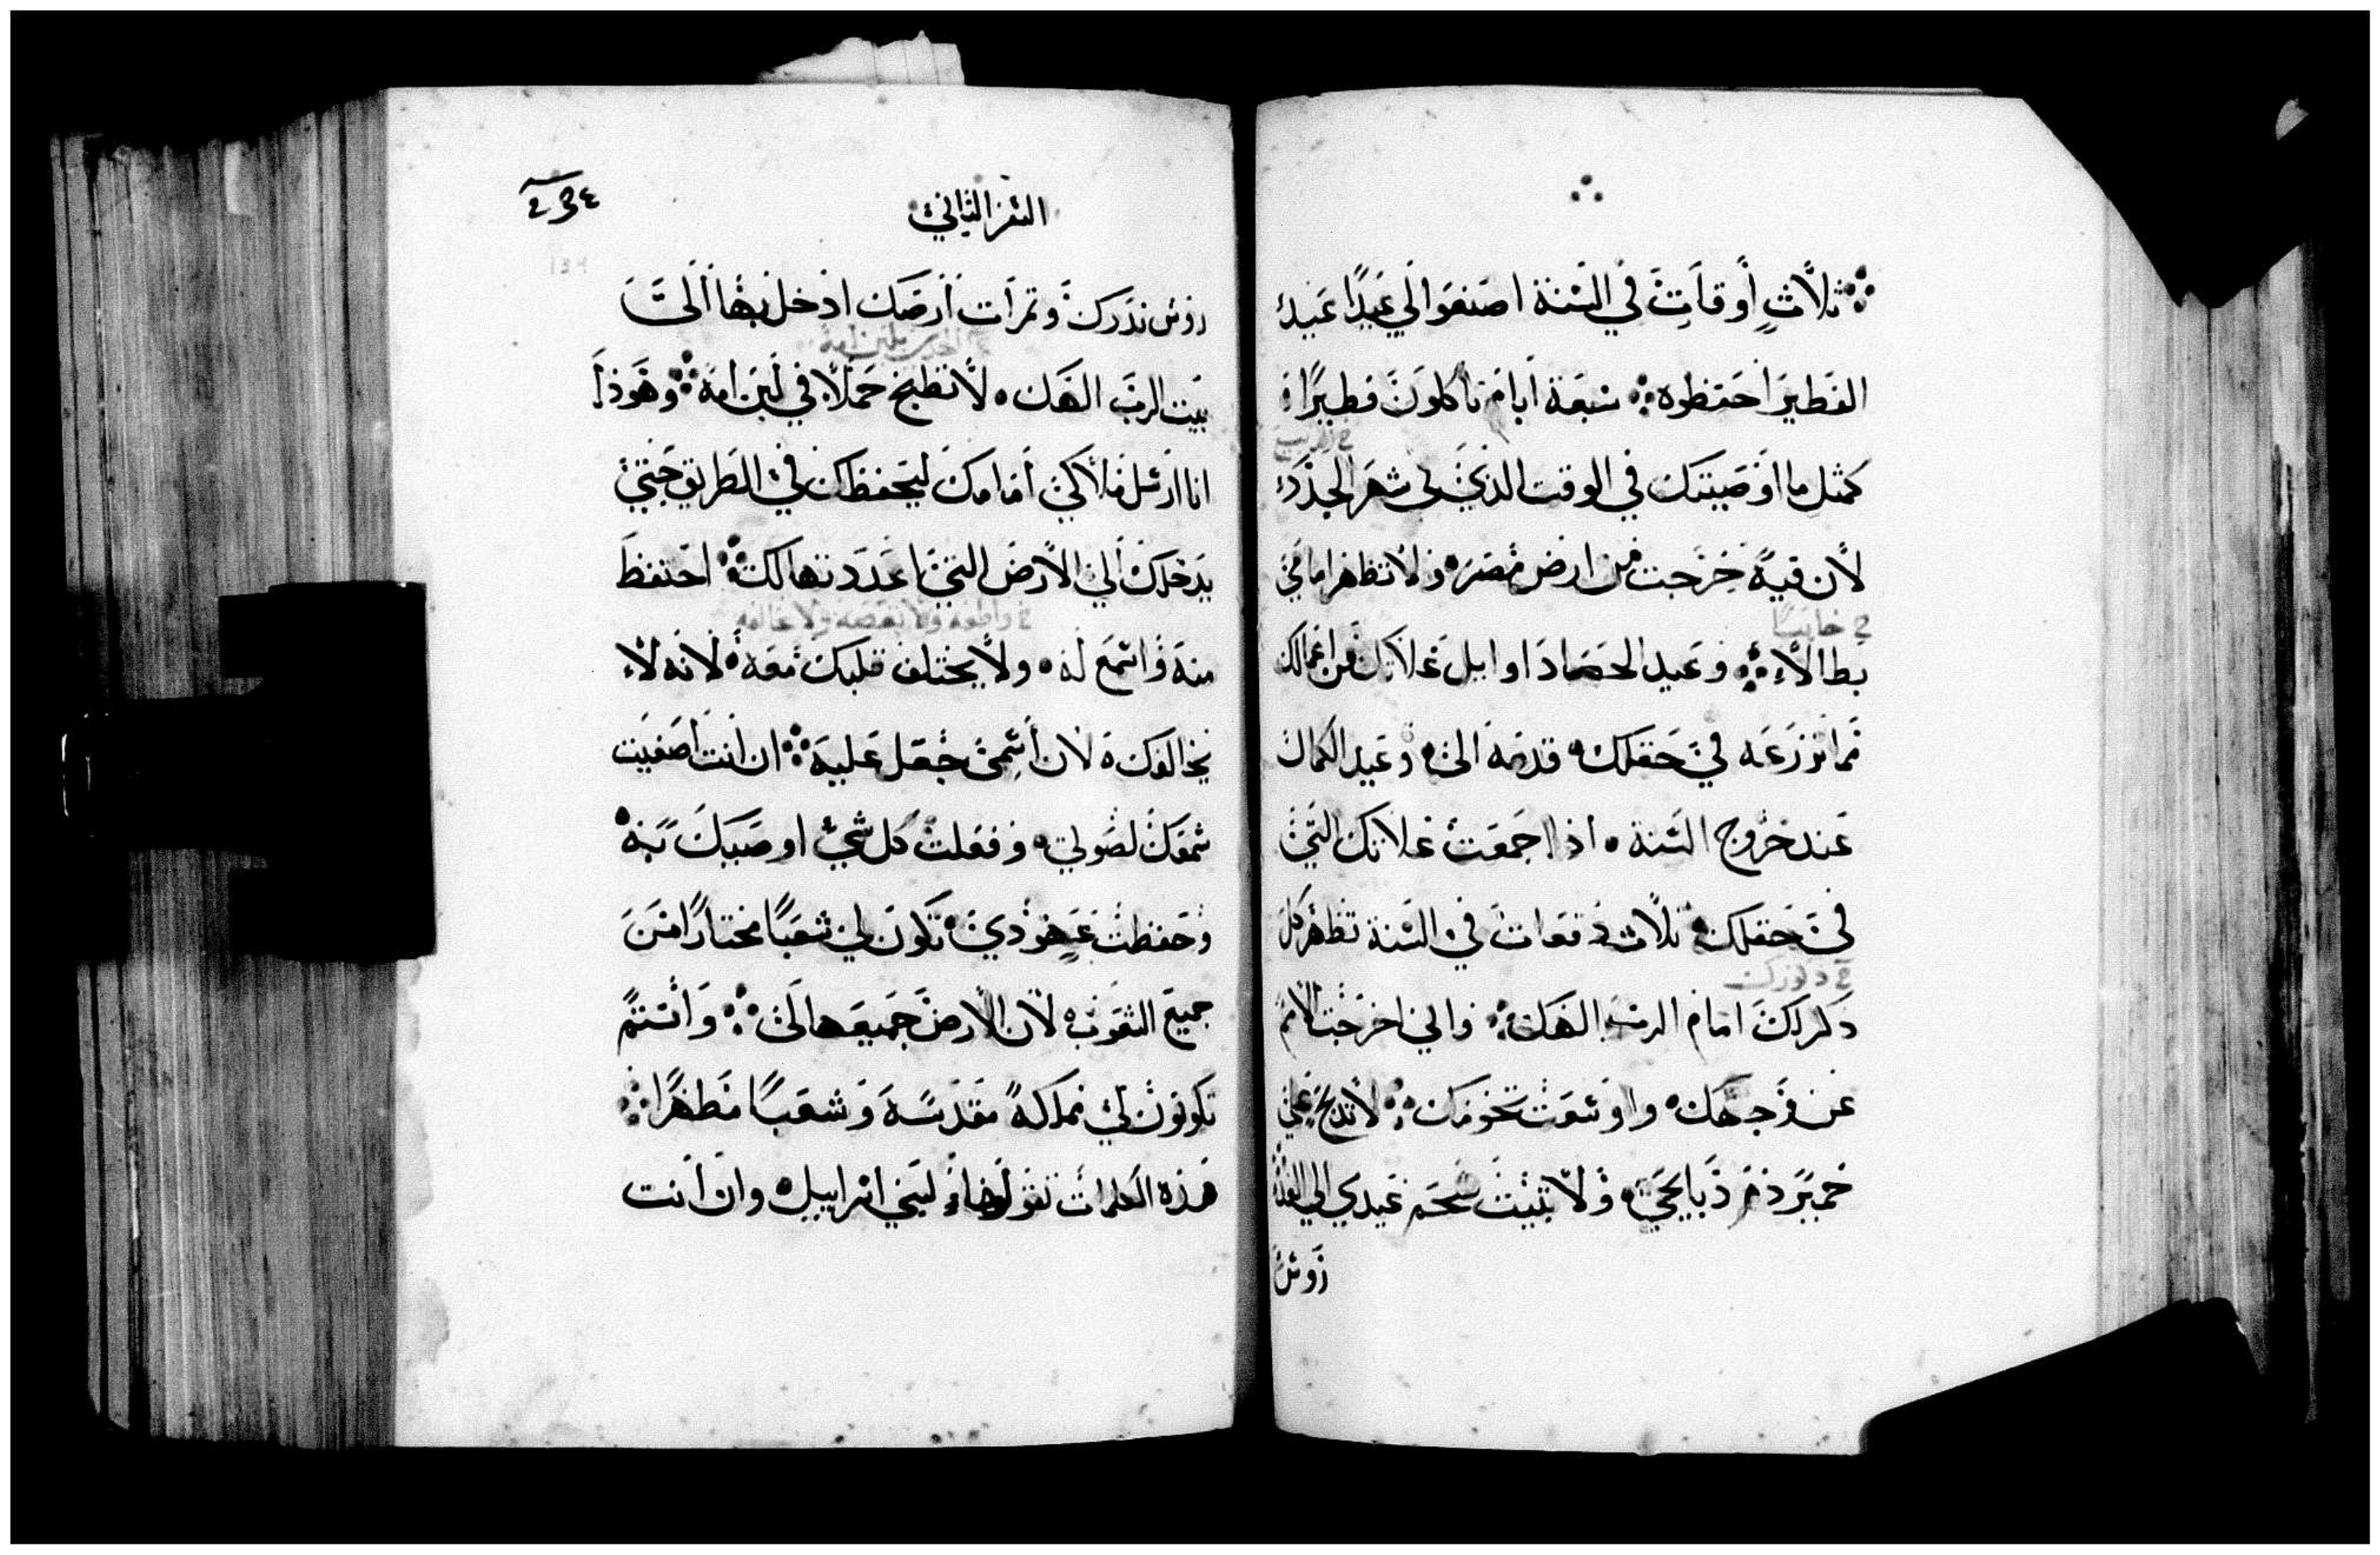 ثلاث أوقات في السنة اصنعوا لي عيدًا عيد
الفطير احفظوه سبعة أيام تأكلون فطيرًا
كمثل ما اوصيتك في الوقت الذي في شهر الجدد
لأن فيه خرجت من ارض مصر ولا تظهر امامي
في خايبًا
بطالاً وعيد الحصاد اوايل غلاتك من اعمالك
مما تزرعه في حقلك قدمه الي وعيد الكمال
عند خروج السنة اذا جمعت غلاتك التي
في حقلك ثلاث دفعات في السنة تظهر كل
في ذكورك
ذكرك امام الرب الهك واني اخرجت الأمم
عن وجهك واوسعت تخومك لا تذبح علي
خمير دم ذبايحي ولا تبيت شحم عيدي الي الغداه
روس
السفر الثاني
134
روس ندرك وثمرات أرضك ادخل بها ألى
بيت الرب الهك لا تطبخ حملاً في لبن امه وهوذا
انا ارسل ملاكي أمامك ليحفظك في الطريق حتى
يدخلك ألى الأرض التي اعددتها لك احتفظ
في واطعه ولا تعصه ولا تخالفه
منه واسمع له ولا يختلف قلبك معه لأنه لا
يخالفك لأن أسمي جعل عليه ان انت أصغيت
سمعك لصوتي وفعلت كل شي اوصيك به
وحفظت عهودي تكون لي شعبًا مختارًا من
جميع الشعوب لأن الأرض جميعها لي وأنتم
تكونون لي مملكة مقدسة وشعبًا مطهرًا
هذه الكلمات تقولها لبني اسراييل وان أنت